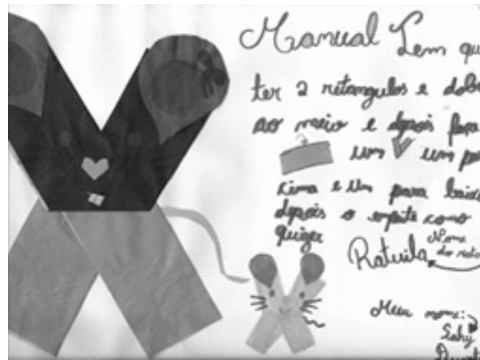 Manual Tem que
ter 2 retangulos e dobr
ao meio e depois para
um V um pa
cima e um para baixo
depois o enfeite como
quizer
Ratuila Nome
do rato
Meu nome: